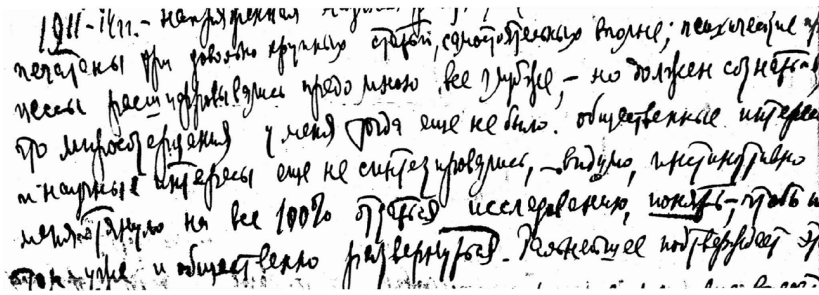 1911-14 гг. - напряженная
печатаны три довольно крупных статьи, самостоятельных вполне; психические
цессы расшифровывались предо мною все глубже, - но должен сознаться
что миросозерцания у меня тогда еще не было. общественные интересы
и научные интересы еще не синтезировались, - видимо, инстинктивно
меня тянуло на все 100% отдаться исследованию, понять, - чтобы
потом уже и общественно развернуться. Дальнейшее подтверждает